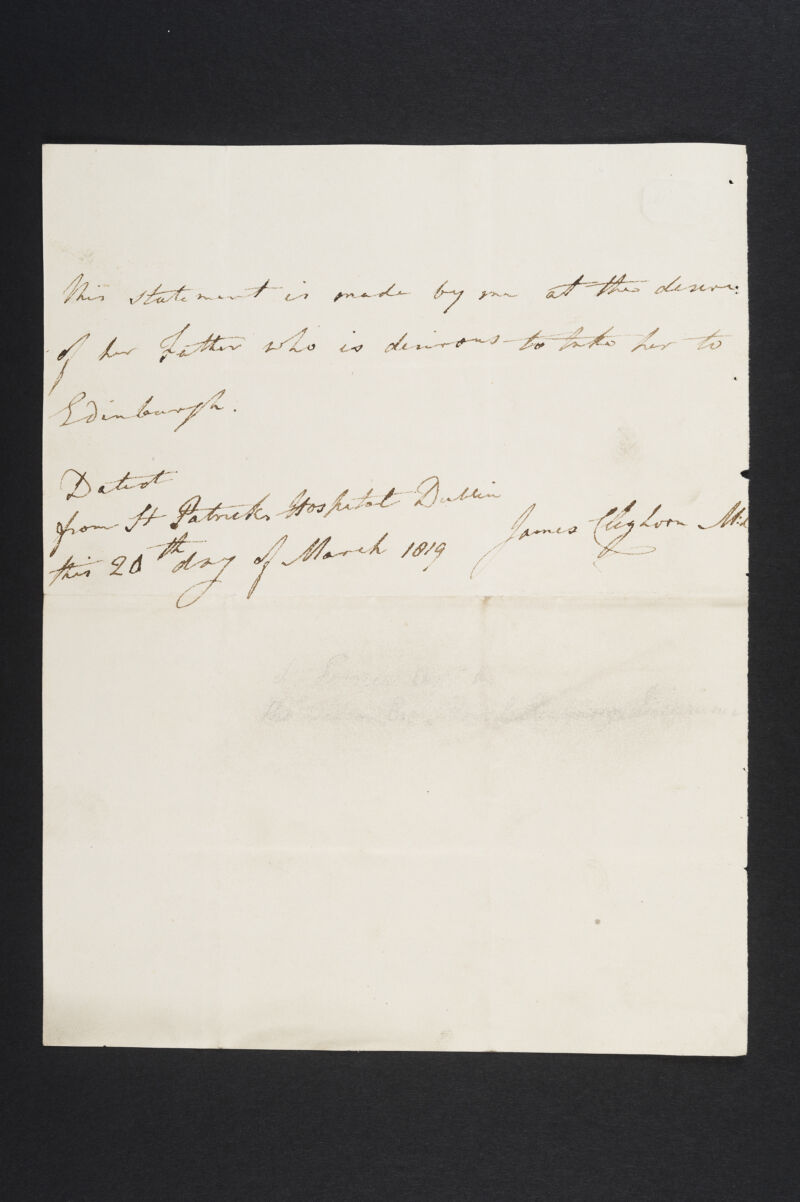 this statement is made by me at the desire
of her Father who is desirous to take her to
Edinburgh.
Dated
from St Patricks Hospital Dublin
this 20th day of March 1819
James Cleghorn MD